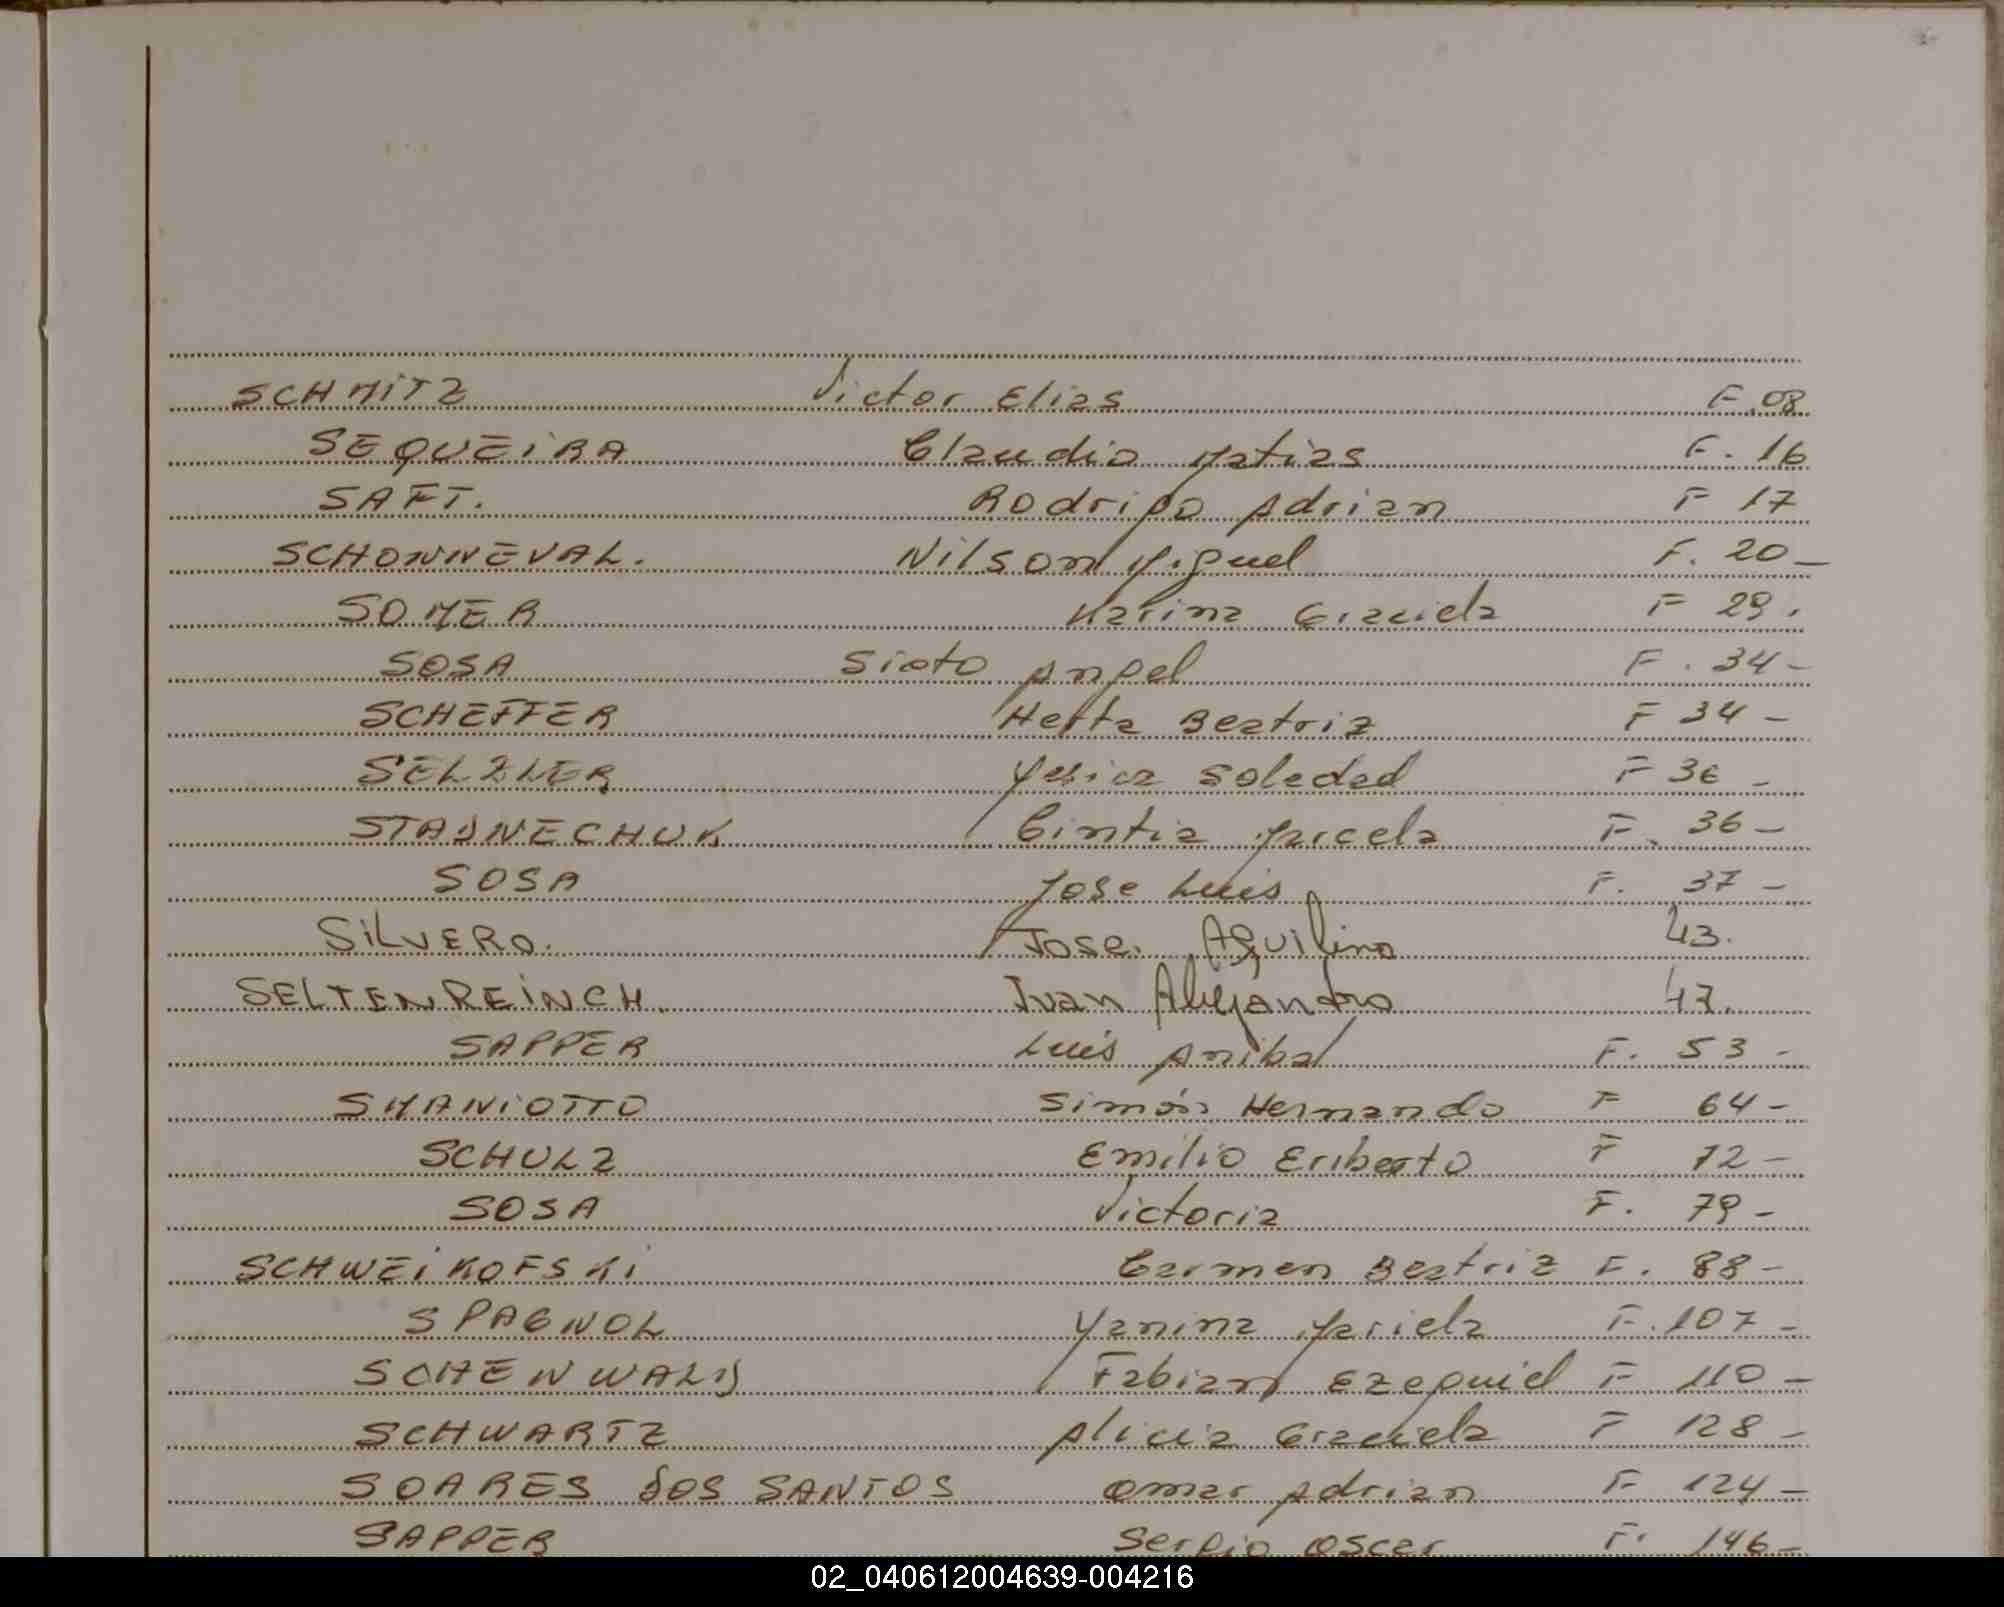 SCHMITZ Victor Elias F.08
SEQUEiRA Claudio Matias F. 16
SAFT. Rodrigo Adrian F 17
SCHONNEVAL. Nilson Miguel F. 20-
SOMER Karina Graciela F 29.
SOSA Sixto Angel F. 34-
SCHEFFER Herta Beatriz F 34-
SELZLER Yesica Soledad F 36-
STADNECHUK Cintia Marcela F. 36-
SOSA Jose Luis F. 37-
SiLVERO. Jose. Aquilino 43.
SELTENREiNCH. Ivan Alejandro 47.
SAPPER Luis Anibal F. 53-
SMANiOTTO Simón Hernando F 64-
SCHULZ Emilio Eriberto F 72-
SOSA Victoria F. 79-
SCHWEiKOFSKi Carmen Beatriz F. 88-
SPAGNOL Yanina Mariela F. 107-
SOHENWALD Fabian Ezequiel F 110-
SCHWARTZ Alicia Graciela F 128-
SOARES DOS SANTOS Omar Adrian F 124-
SAPPER Sergio Oscar F. 146-
02_040612004639-004216